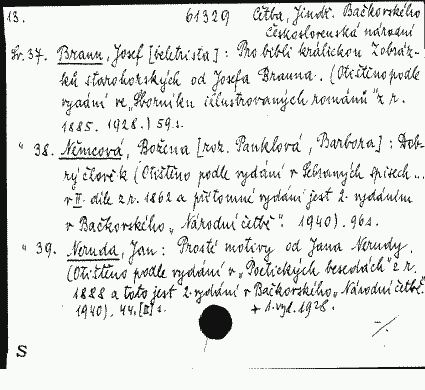 13. 61329 Četba, Jindř. Bačkovského
Československá národní
Sv. 37. Braun, Josef [beletrista]: Pro bibli králickou. Zobráz-
ků starohorských od Josefa Brauna. (Otištěno podle
vydání ve „Sborníku illustrovaných románů“ z r.
1885. 1928.) 59 s.
" 38. Němcová, Božena [roz. Panklová, Barbora]: Dob-
rý člověk (Otištěno podle vydání v Sebraných spisech...
v II. díle z r. 1862 a přítomné vydání jest 2. vydáním
v Bačkovského „Národní četbě“. 1940). 96 s.
" 39. Neruda, Jan: Prosté motivy od Jana Nerudy.
(Otištěno podle vydání v „Poetických besedách“ z r.
1888 a toto jest 2. vydání v Bačkovského „Národní četbě“.
1940). 44, [II] s. + 1. vyd. 1928.
S